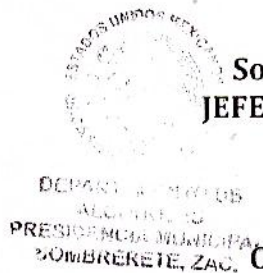 ESTADOS UNIDOS MEXICANOS
So
JEFE
DEPARTAMENTO DE
PRESIDENCIA MUNICIPAL
SOMBRERETE, ZAC.
C